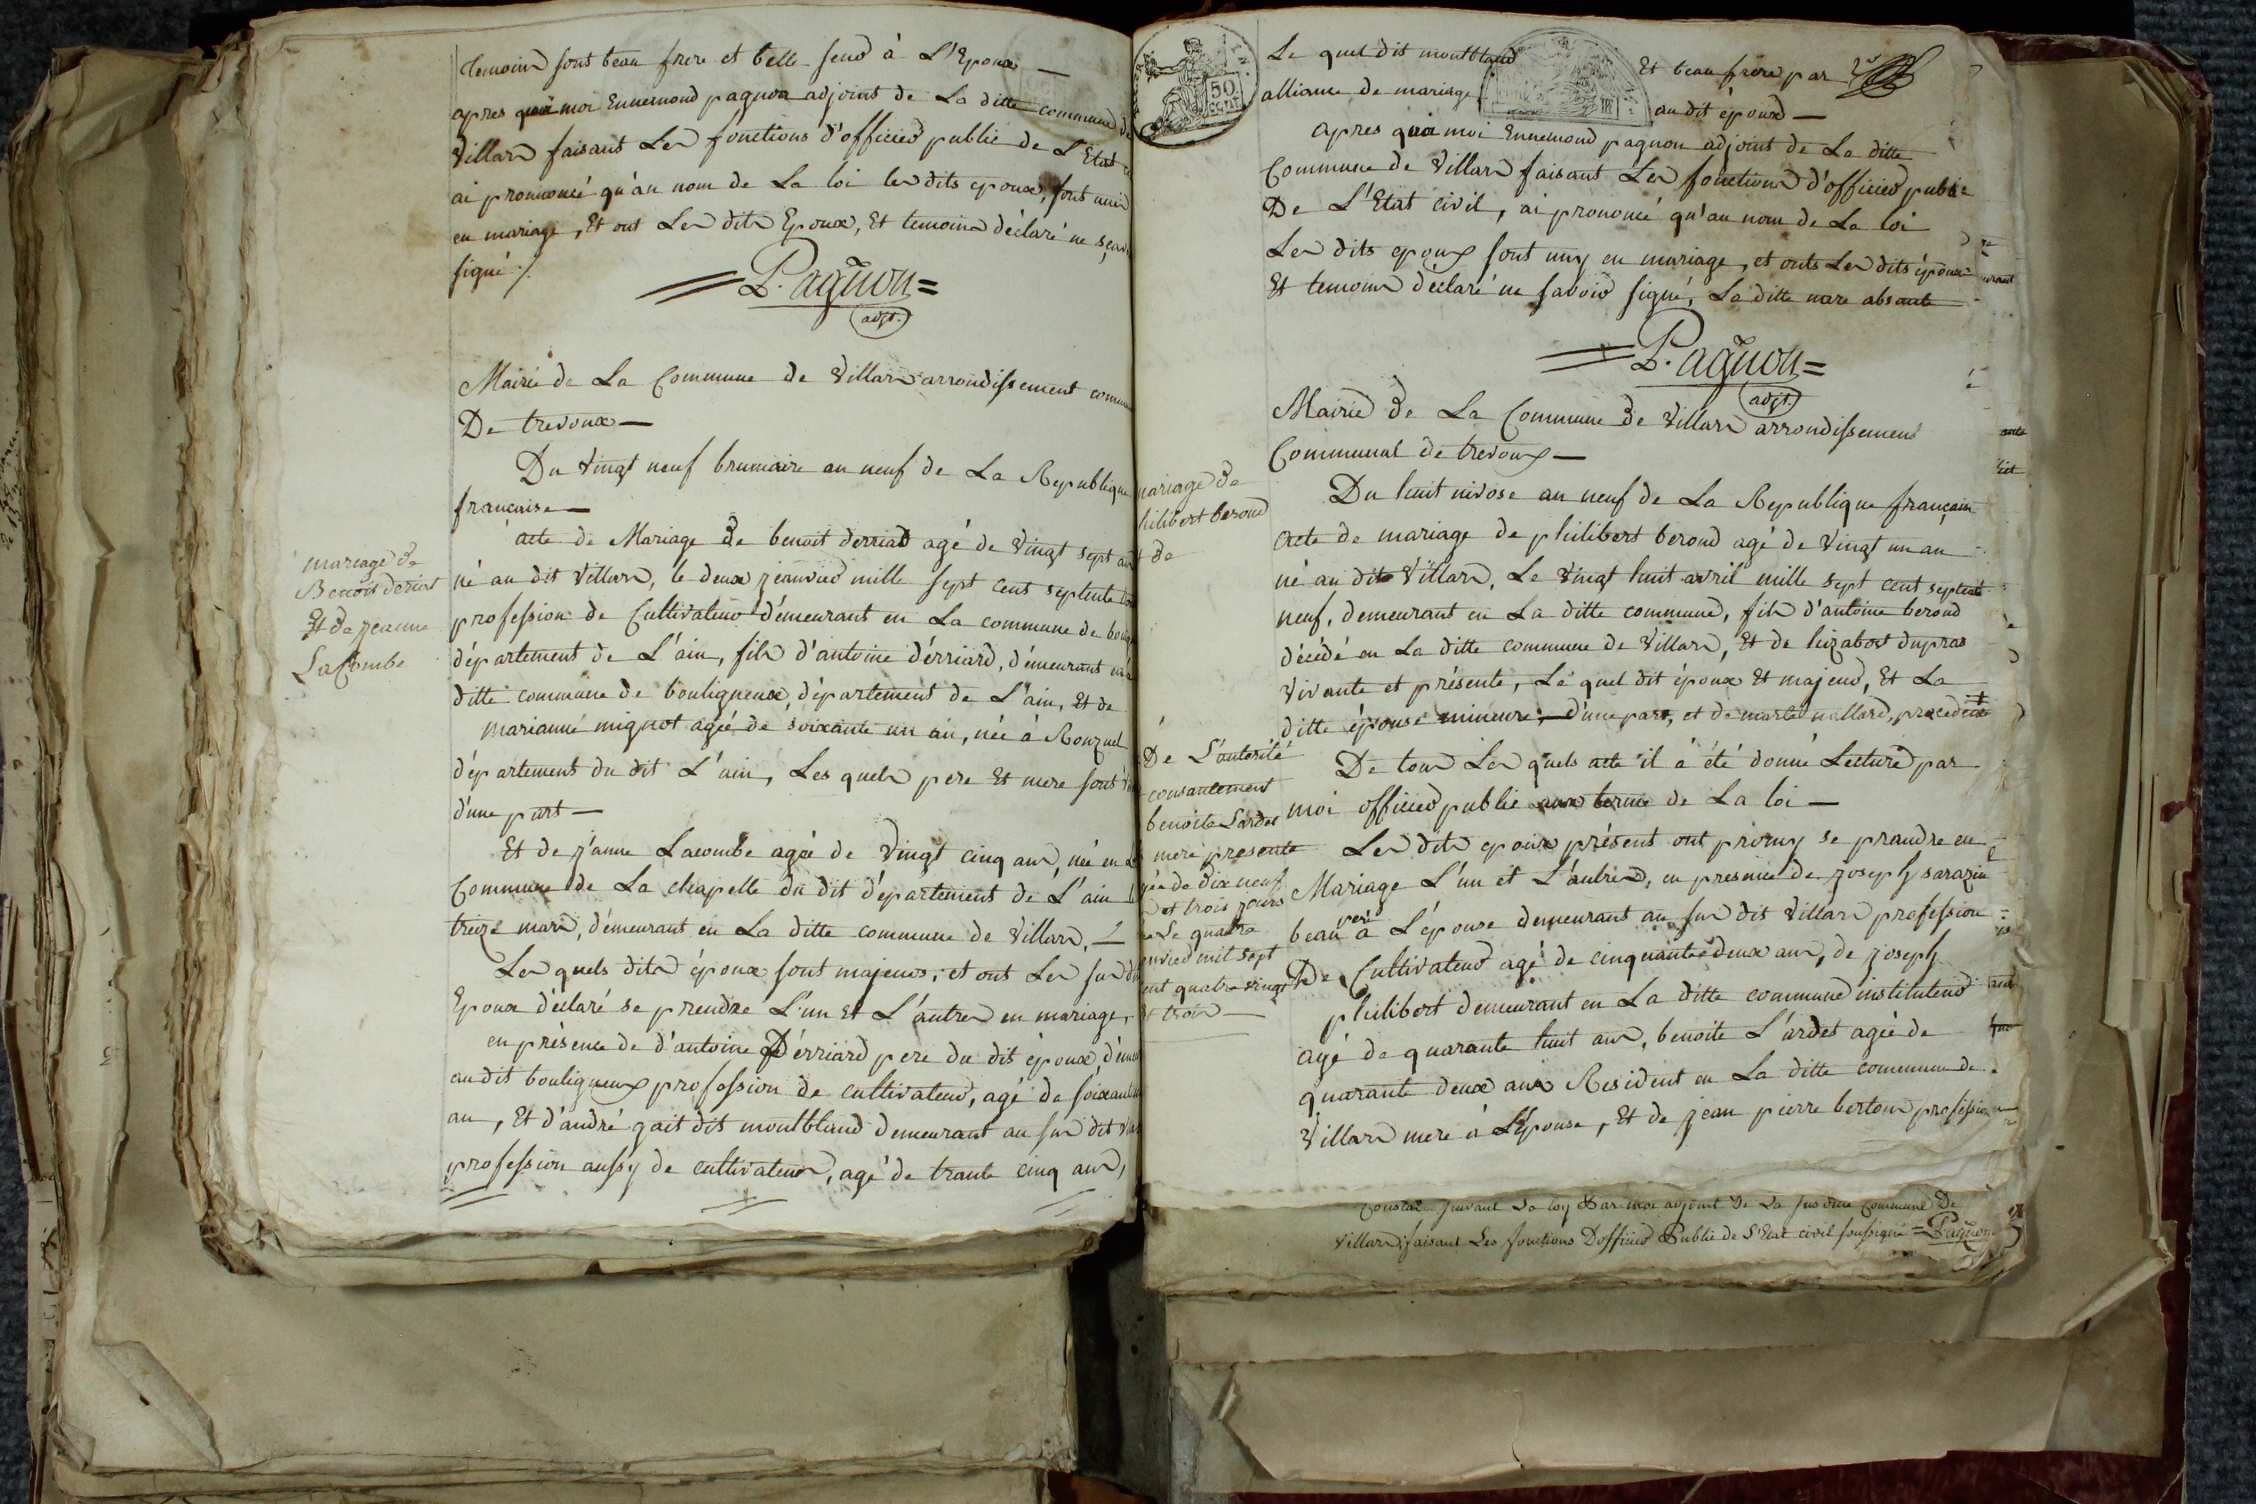 temoins sont beau frere et belle seur à L'Epoux —
apres quoi moi Ennemond pagnon adjoint de La ditte commune de
Villars faisant Les fonctions d'officier public de L'Etat
ai prononcé qu'au nom de La loi les dits epoux, sont unis
en mariage, Et ont Les dits Epoux, Et temoins déclaré ne
signé ./.
= P. agnon =
adjt.
Mairie de La Commune de Villars arrondissement
De trevoux —
Du Vingt neuf brumaire an neuf de La Republique
francaise —
mariage de
Benoit deriat
Et de jeanne
La Combe
acte de Mariage de benoit derriard agé de Vingt sept ans
né au dit Villars, le deux jeanvier mille sept cent septente
profession de Cultivateur démeurant en La commune de
département de L'ain, fils d'antoine dérriard, démeurant
ditte commune de bouligneux, département de L'ain, Et de
marianne mignot agée de soixante un an, née à Ronzuel
département du dit L'ain, Les quels pere Et mere sont
d'une part —
Et de j'anne Lacombe agée de Vingt cinq ans, née en
Commune de La chapelle du dit département de L'ain
treize mars, démeurant en La ditte commune de Villars, —
Les quels dits époux sont majeurs; et ont Les sus dit
Epoux déclaré se prendre L'un Et L'autre en mariage,
en présence de d'antoine Dérriard pere du dit époux
au dit bouligneux profession de cultivateur, agé de
an, Et d'andré gait dit montbland demeurant au sus dit
profession aussy de cultivateur, agé de trante cinq ans,
50
CENT
Le quel dit montbland Et beau frere par
alliance de mariage au dit époux —
apres quoi moi Ennemond pagnon adjoint de La ditte
Commune de Villars faisant Les fonctions d'officier public
De L'Etat civil, ai prononcé qu'au nom de La loi
Les dits epoux sont uny en mariage, et onts Les dits époux
Et temoins déclaré ne savoir signé, La ditte mere absante
= P. agnon =
adjt.
Mairie de La Commune de Villars arrondissement
Communal de trevoux —
mariage de
philibert beroud
Et de
Du huit nivose an neuf de La Republique français
acte de mariage de philibert beroud agé de Vingt un an
né au dit Villars, Le Vingt huit avril mille sept cent septente
neuf, demeurant en La ditte commune, fils d'antoine beroud
décédé en La ditte commune de Villars, Et de lizabet dupras
Vivante et présente, Le quel dit époux Et majeur, Et La
ditte épouse mineure, d'une part, et de marie millard, procedente
De L'autorité
consantement
benoite Lardet
mere presente
agée de dix neuf
et trois jours
Le quatre
jenvier mil sept
cent quatre vingt
trois —
De tous Les quels acte il à été donné Lecture par
moi officier public aux terme de La loi —
Les dits epoux présent ont promy se prandre en
Mariage L'un et L'autre, en presence de joseph sarazin
beau pere à L'épouse demeurant au sus dit Villars profession
De Cultivateur agé de cinquante deux ans, de joseph
philibert demeurant en La ditte commune instituteur
agé de quarante huit ans, benoite L'ardet agée de
quarante deux ans Resident en La ditte commune de
Villars mere à L'épouse, Et de jean pierre bertoux profession
Constaté suivant La loy Par moi adjoint de La susditte Commune De
Villars, faisant Les fonctions D'officier Public de L'Etat civil soussigné = Pagnon